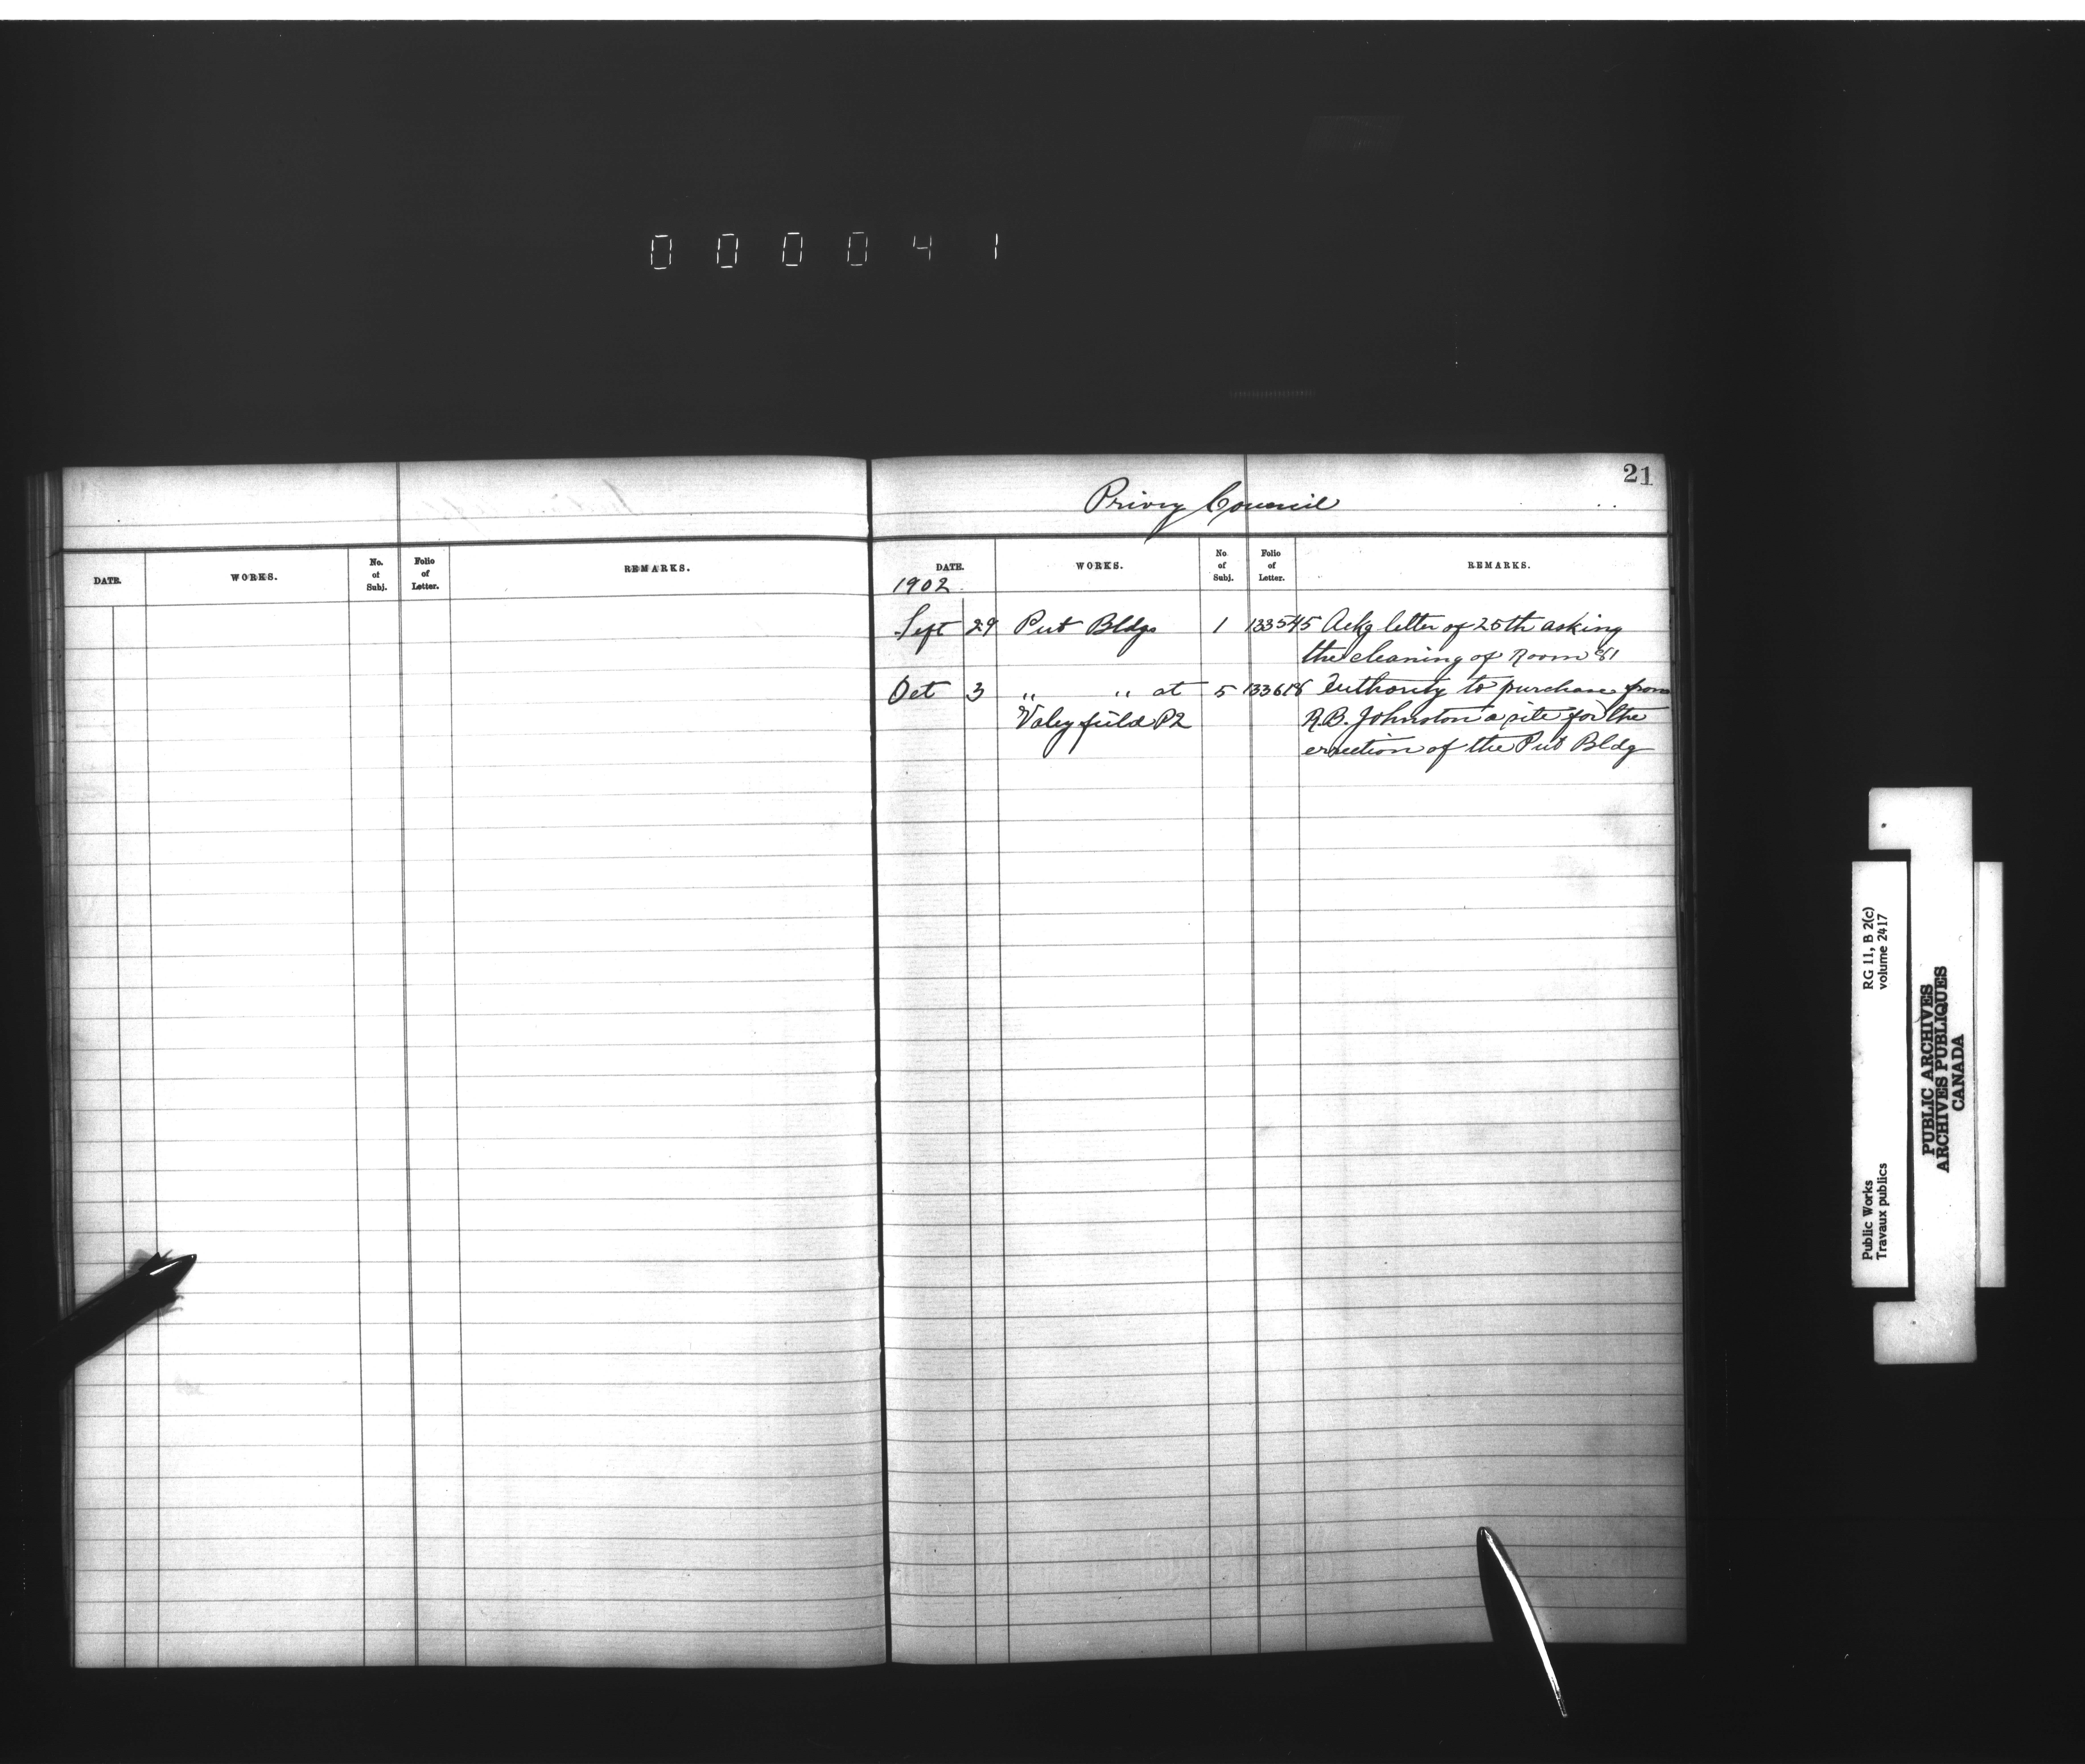 0 0 0 0 4 1
21
Privy Council
DATE. WORKS. No. of Subj. Folio of Letter. REMARKS.
DATE. WORKS. No of Subj. Folio of Letter. REMARKS.
1902.
Sept 29 Pub Bldgs 1 133545 Ackg letter of 25th asking
the cleaning of Room
Oct 3 " " at 5 Authority to purchase from
Valleyfield PQ A.B. Johnston a site for the
erection of the Pub Bldg
RG 11, B 2(c)
volume 2417
Public Works
Travaux publics
PUBLIC ARCHIVES
ARCHIVES PUBLIQUES
CANADA